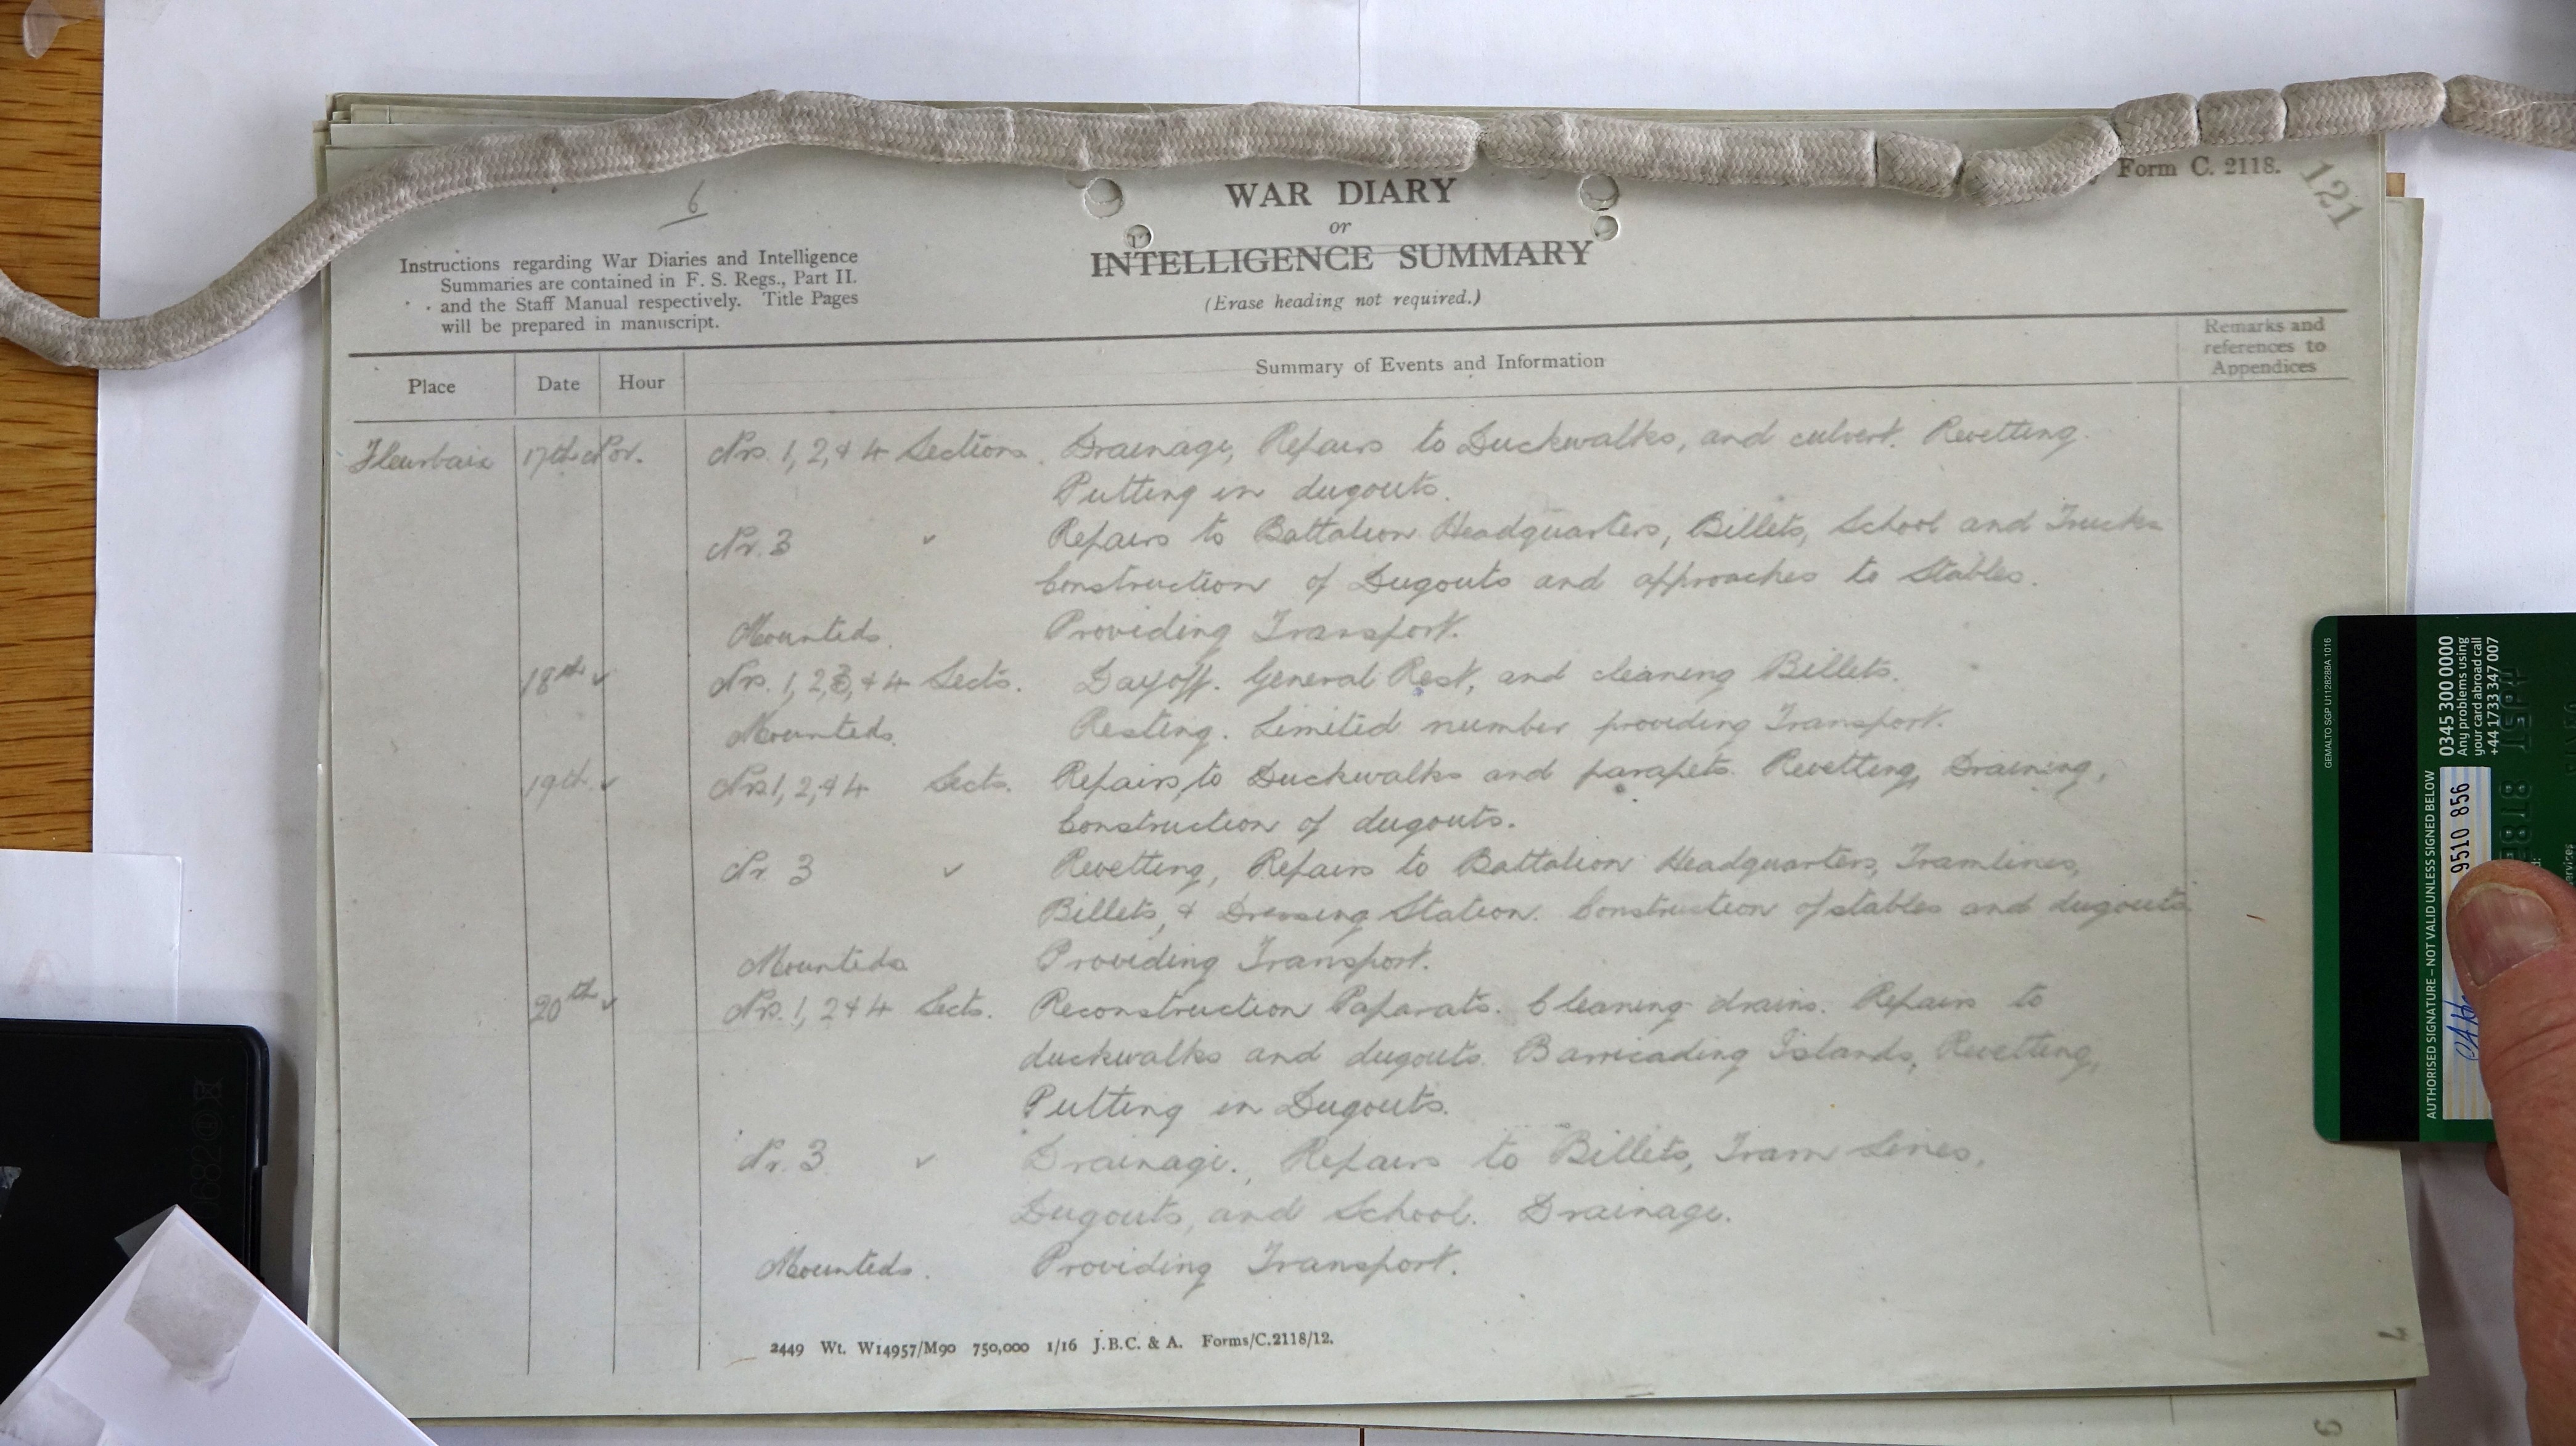 6
Form C. 2118.
121
WAR DIARY
or
INTELLIGENCE SUMMARY
(Erase heading not required.)
Instructions regarding War Diaries and Intelligence
Summaries are contained in F. S. Regs., Part II.
and the Staff Manual respectively. Title Pages
will be prepared in manuscript.
Place Date Hour Summary of Events and Information Remarks and
references to
Appendices
Fleurbaix 17th Nov. Nrs. 1, 2, & 4 Sections. Drainage, Repairs to Duckwalks, and culvert. Revetting.
Putting in dugouts.
Nr. 3 " Repairs to Battalion Headquarters, Billets, School and Trucks
Construction of Dugouts and approaches to Stables.
Mounteds. Providing Transport.
18th " Nrs. 1, 2, 3, & 4 Sects. Day off. General Rest, and cleaning Billets.
Mounteds. Resting. Limited number providing Transport.
19th " Nrs. 1, 2, & 4 Sects. Repairs, to Duckwalks and parapets. Revetting, Draining,
Construction of dugouts.
Nr. 3 " Revetting, Repairs to Battalion Headquarters, Tramlines,
Billets, & Dressing Station. Construction of stables and dugouts.
Mounteds. Providing Transport.
20th " Nrs. 1, 2 & 4 Sects. Reconstruction Paparats. Cleaning drains. Repairs to
duckwalks and dugouts. Barricading Islands, Revetting,
Putting in Dugouts.
Nr. 3. " Drainage., Repairs to Billets, Tram Lines,
Dugouts, and School. Drainage.
Mounteds. Providing Transport.
2449 Wt. W14957/M90 750,000 1/16 J.B.C. & A. Forms/C.2118/12.
7
9
GEMALTO SGP U1128288A 1016
0345 300 0000
Any problems using
your card abroad call
+44 1733 347 007
AUTHORISED SIGNATURE – NOT VALID UNLESS SIGNED BELOW